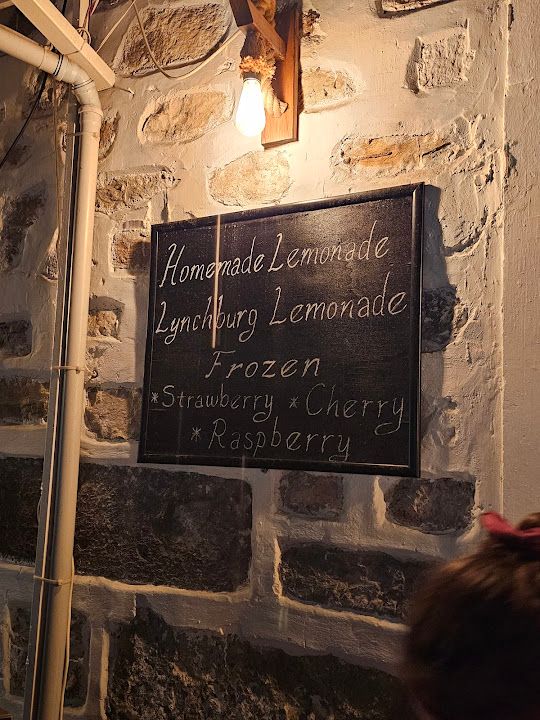 Homemade Lemonade
Lynchburg Lemonade
Frozen
*Strawberry *Cherry
*Raspberry